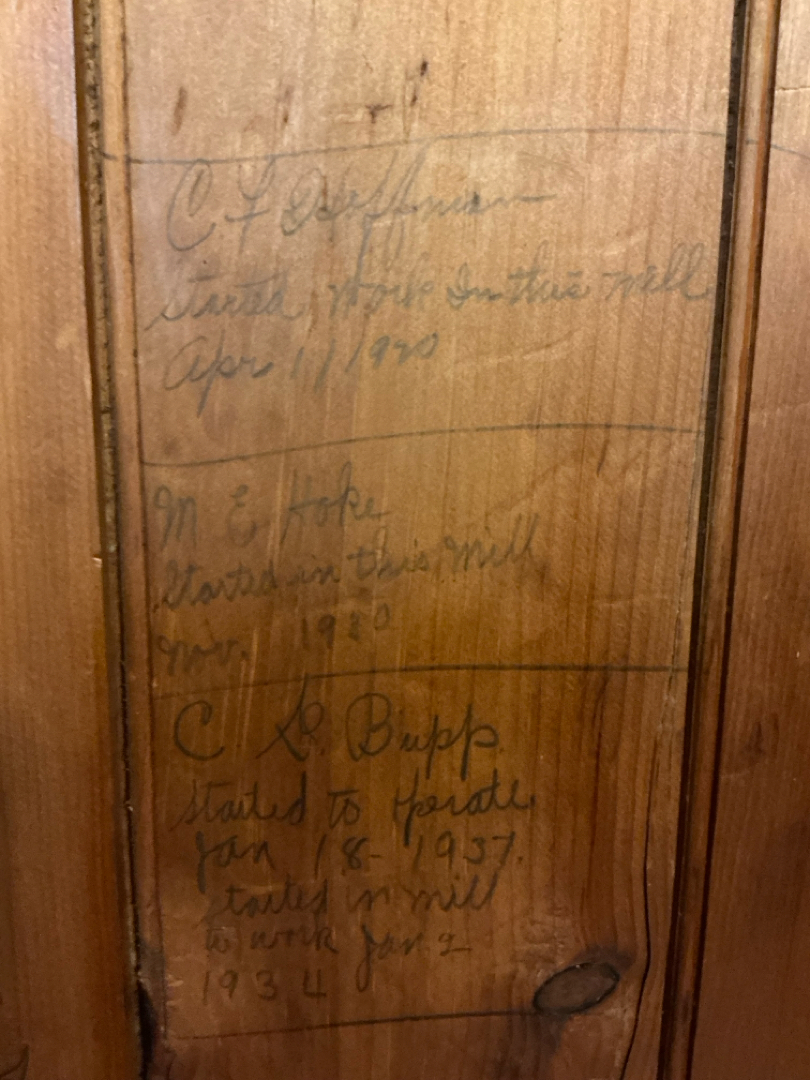 C. F Hoffman
Started Work In this Mill
Apr 1 / 1920
M E Hoke
Started in this Mill
Nov.
C. L. Bupp.
Started to Operate
Jan 18 - 1937.
started in mill
to work Jan 2
1934